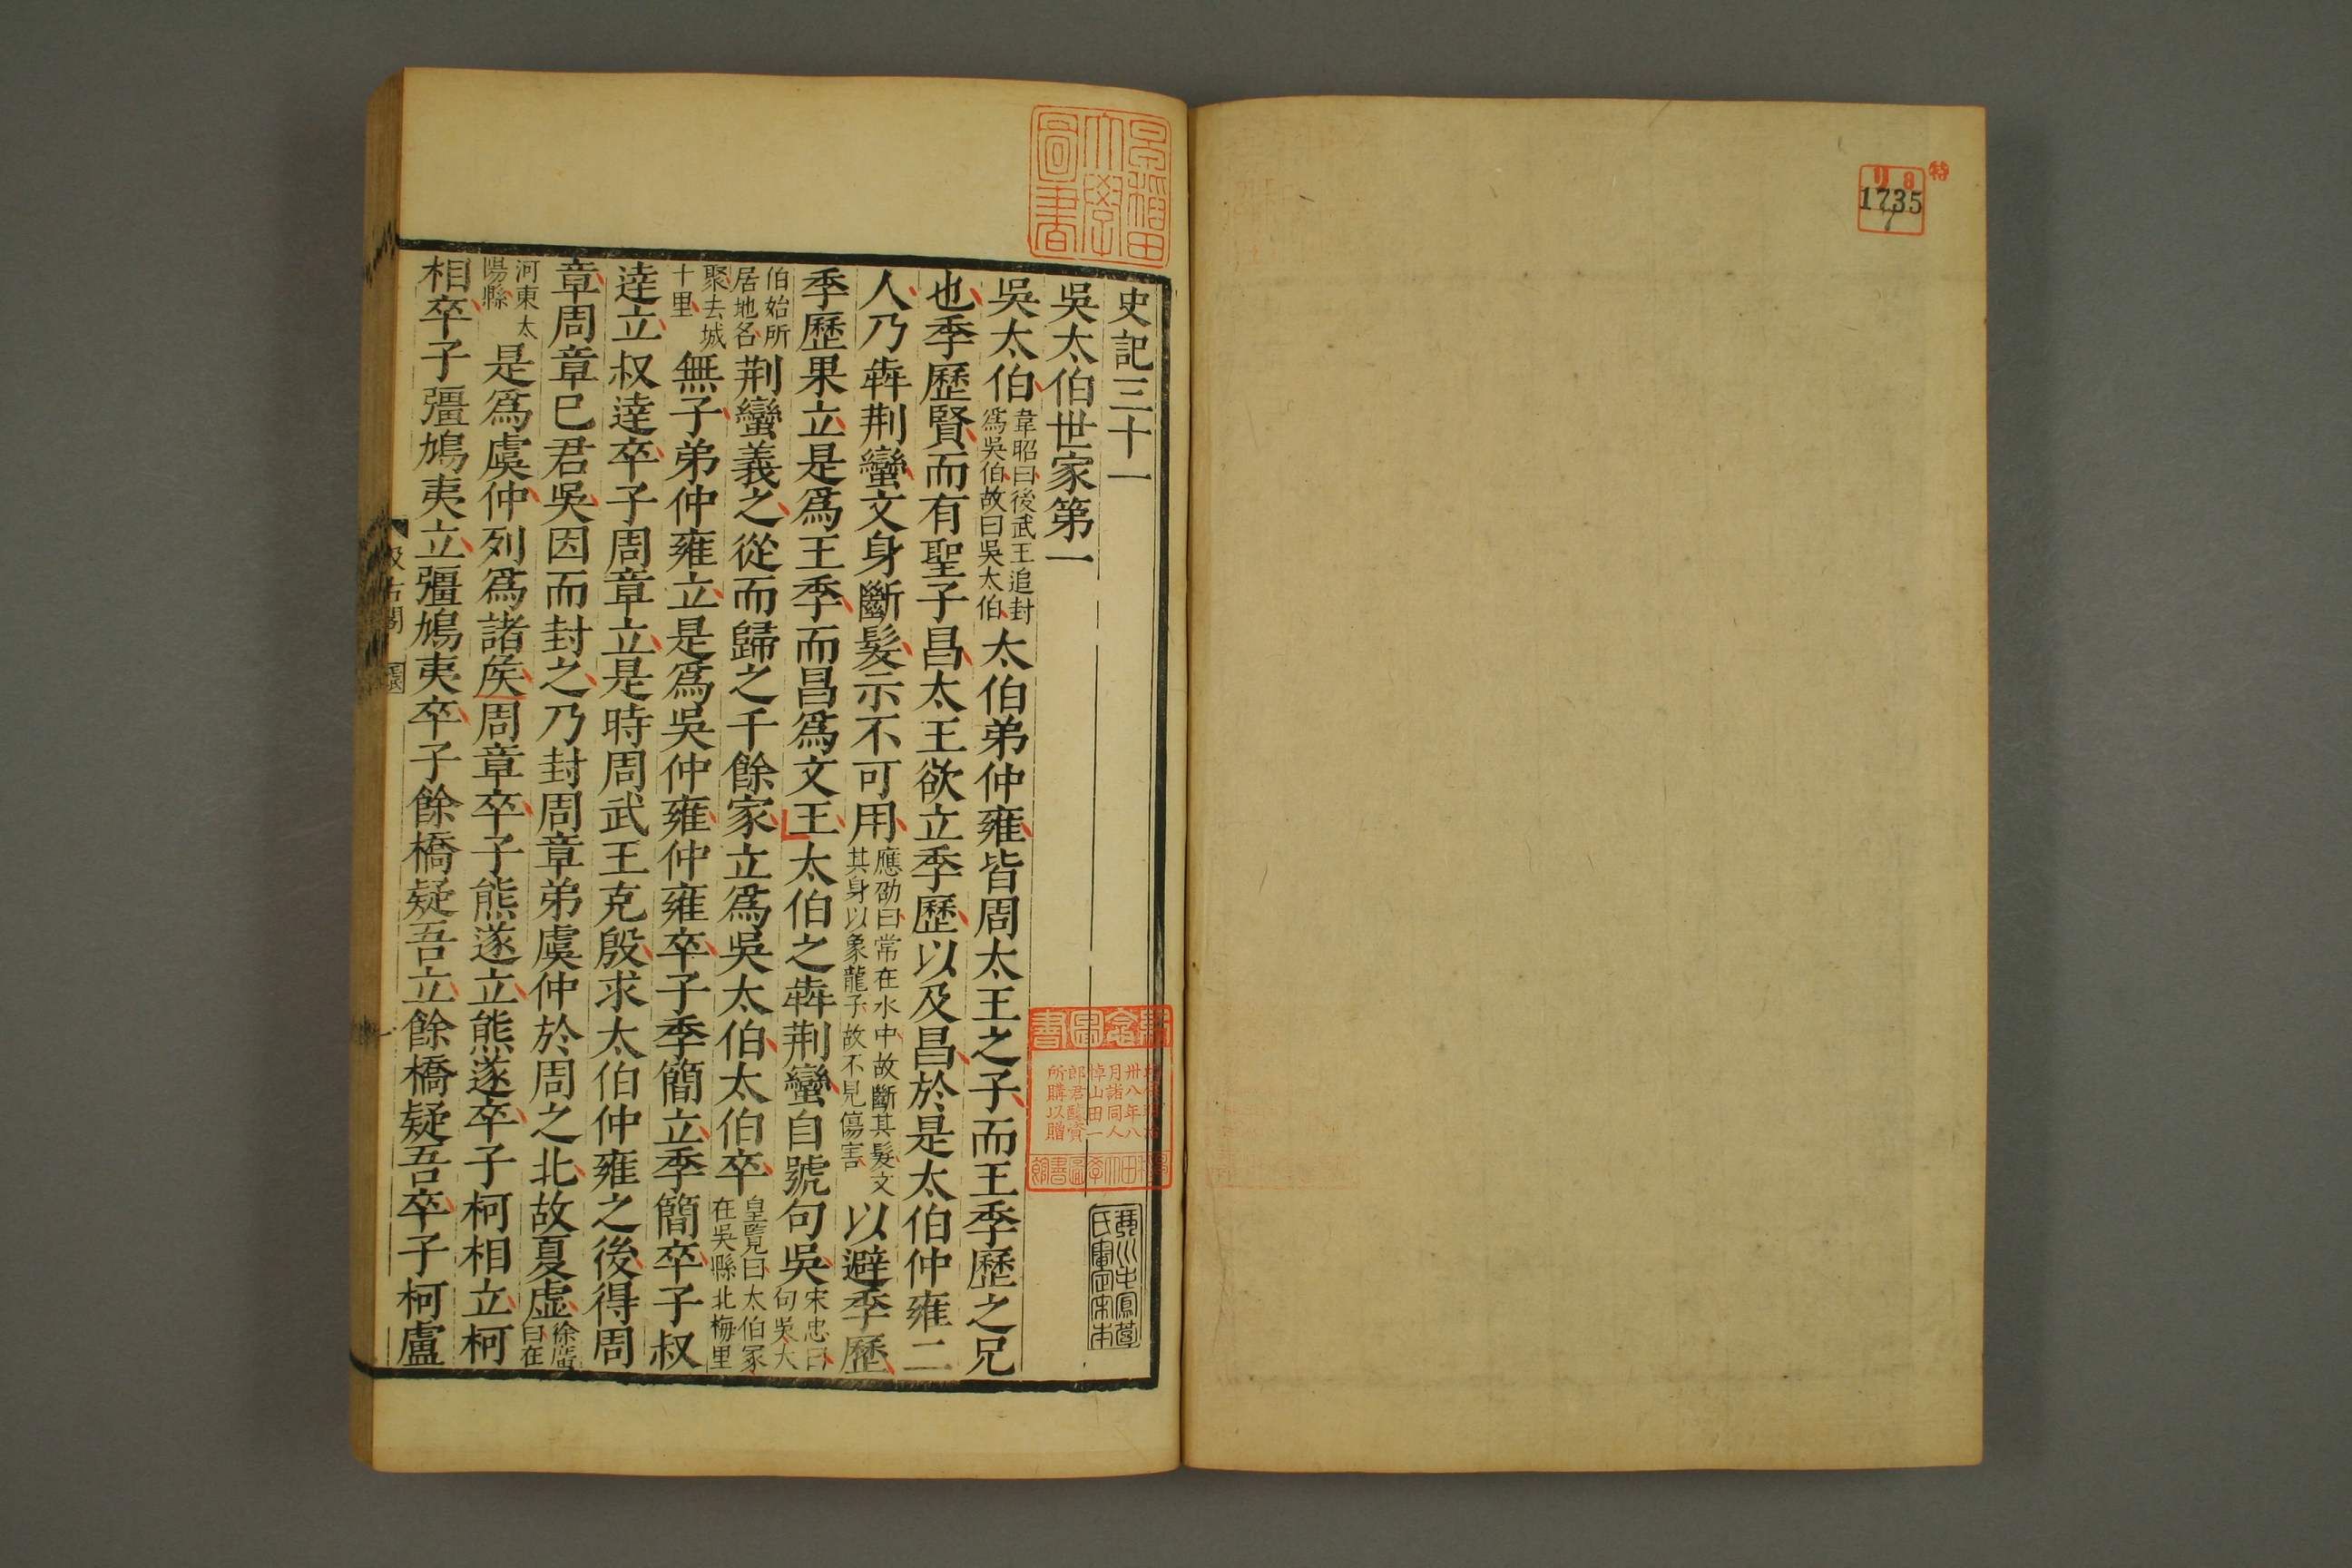 特
リ8
1735
7
早稲田大學圖書
史記三十一
吳太伯世家第一
吳太伯韋昭曰後武王追封爲吳伯故曰吳太伯太伯弟仲雍皆周太王之子而王季歷之兄
也季歷賢而有聖子昌太王欲立季歷以及昌於是太伯仲雍二
人乃犇荆蠻文身斷髮示不可用應劭曰常在水中故斷其髮文其身以象龍子故不見傷害以避季歷
季歷果立是爲王季而昌爲文王太伯之犇荆蠻自號句吳宋忠曰句吳太
伯始所居地名荆蠻義之從而歸之千餘家立爲吳太伯太伯卒皇覽曰太伯冢在吳縣北梅里
聚去城十里無子弟仲雍立是爲吳仲雍仲雍卒子季簡立季簡卒子叔
逹立叔逹卒子周章立是時周武王克殷求太伯仲雍之後得周
章周章已君吳因而封之乃封周章弟虞仲於周之北故夏虛徐廣曰在
河東太陽縣是爲虞仲列爲諸矦周章卒子熊遂立熊遂卒子柯相立柯
相卒子彊鳩夷立彊鳩夷卒子餘橋疑吾立餘橋疑吾卒子柯盧
汲古閣
月諸同人
悼山田一
郎君醵資
所購以贈